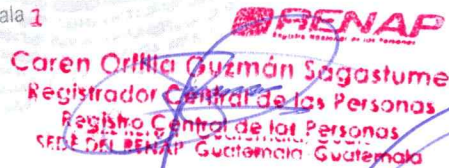 ala 1
RENAP
Registro Nacional de las Personas
Caren Guzmán Sagastume
Registrador Central de las Personas
Registro Central de las Personas
SEDE DEL RENAP Guatemala Guatemala